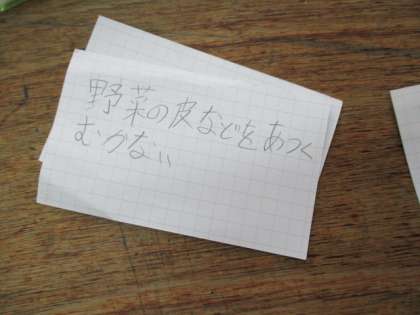 野菜の皮などをあつく
むかない